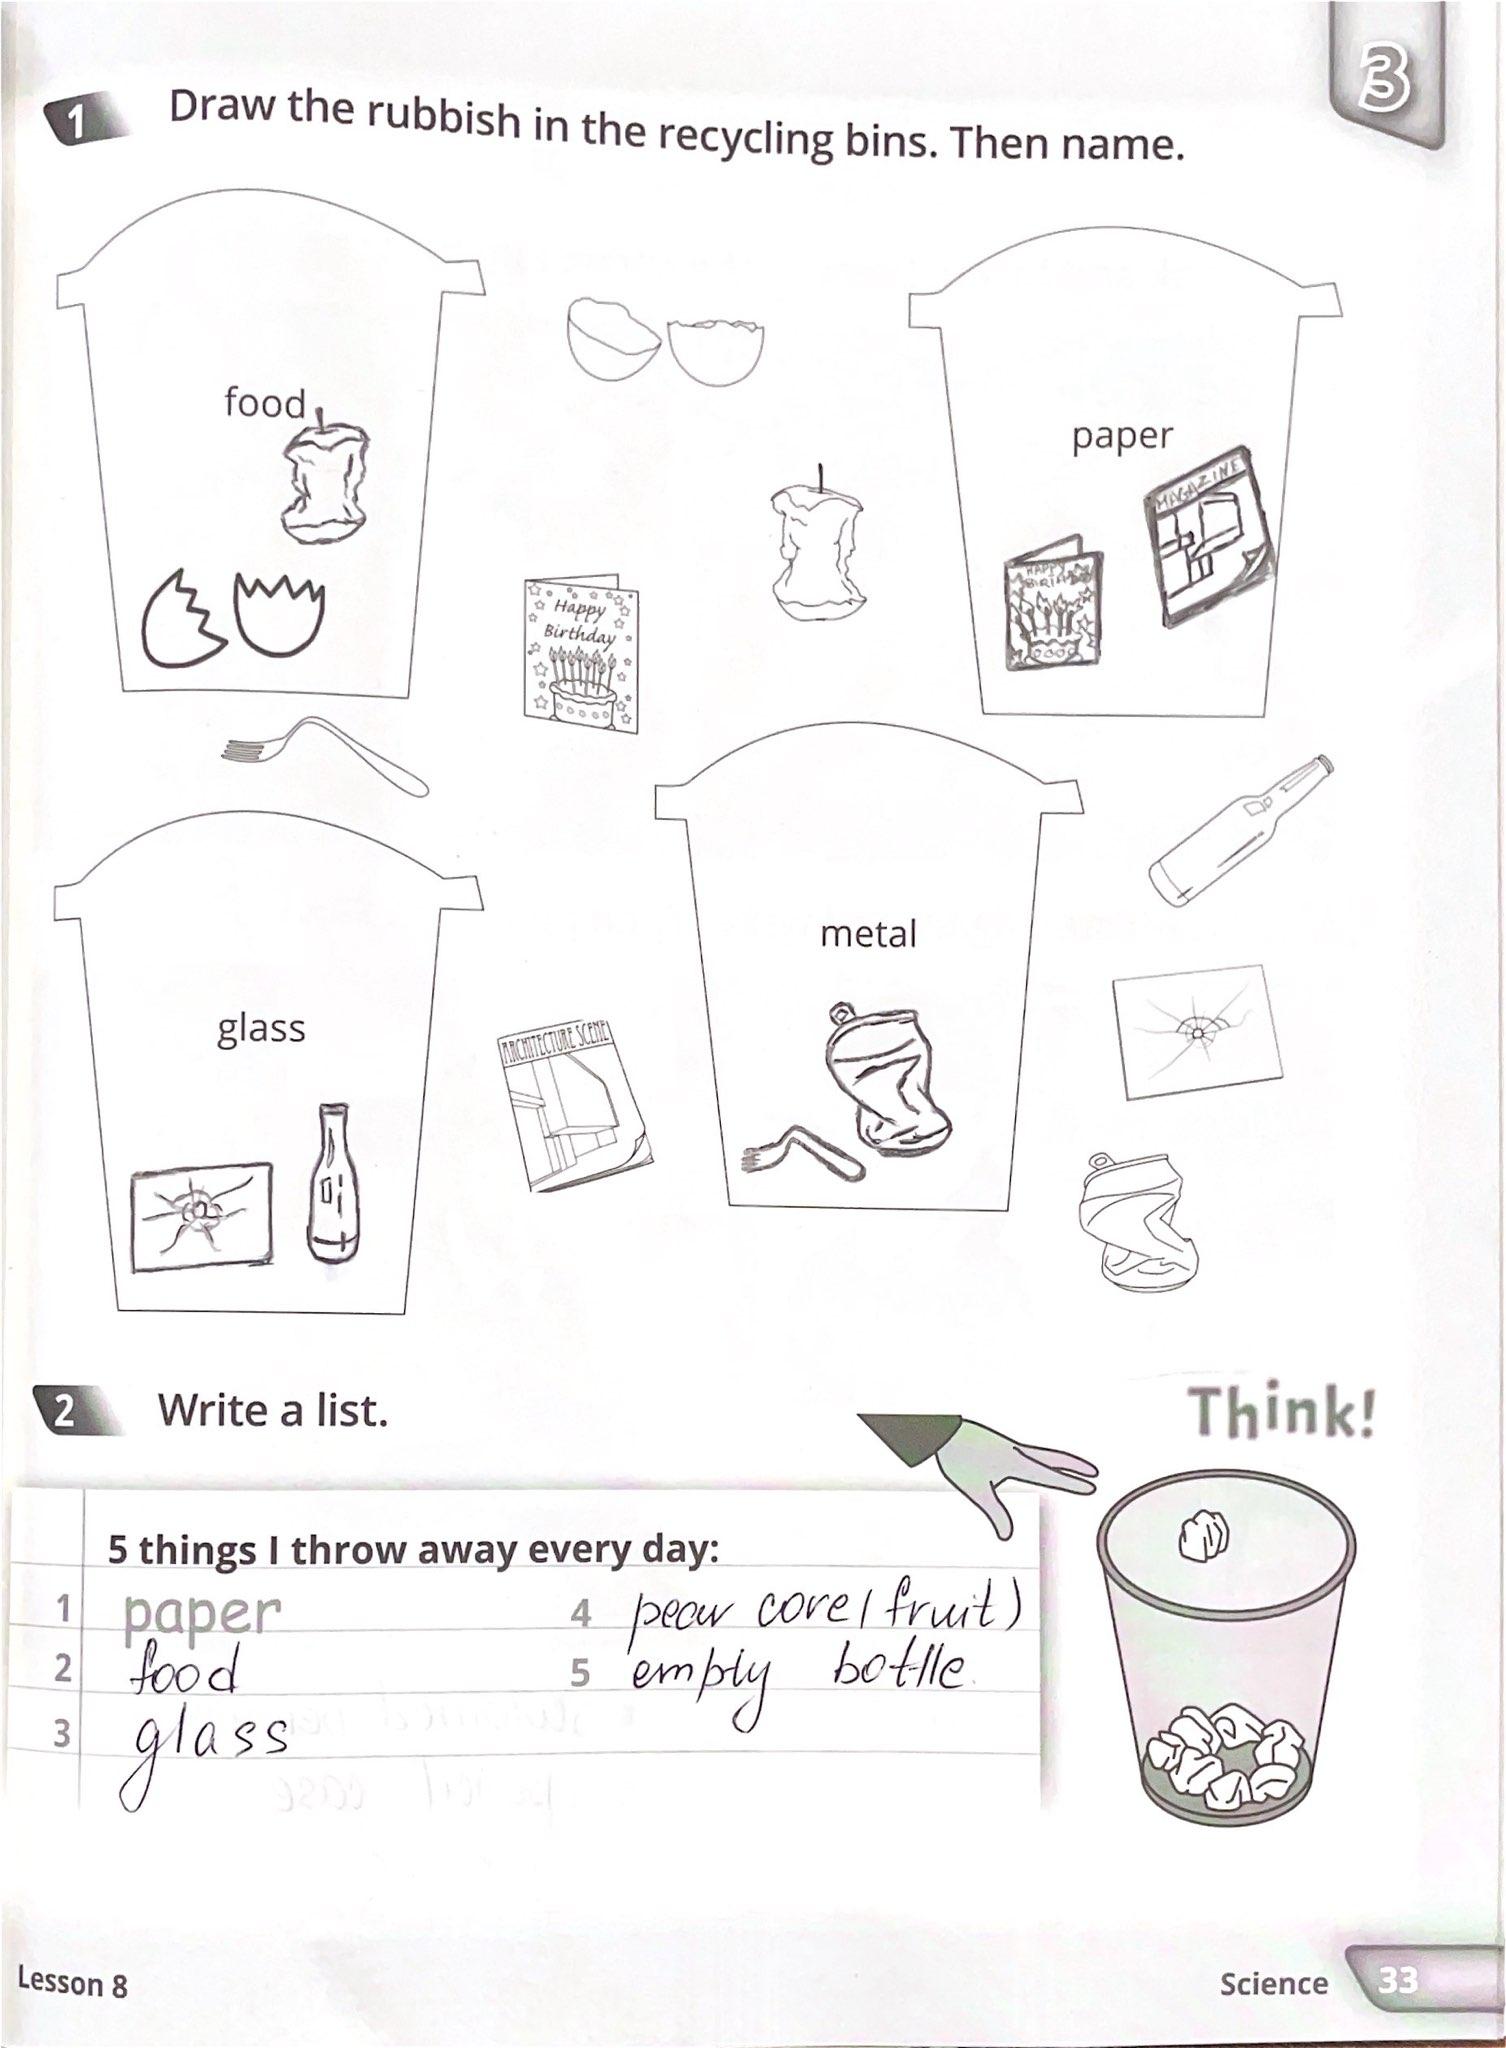 3
1 Draw the rubbish in the recycling bins. Then name.
food
paper
MAGAZINE
HAPPY
Happy
Birthday
metal
glass
ARCHITECTURE SCENE
2 Write a list.
Think!
5 things I throw away every day:
1 paper
2 food
3 glass
4 pear core (fruit)
5 empty bottle
Lesson 8
Science 33